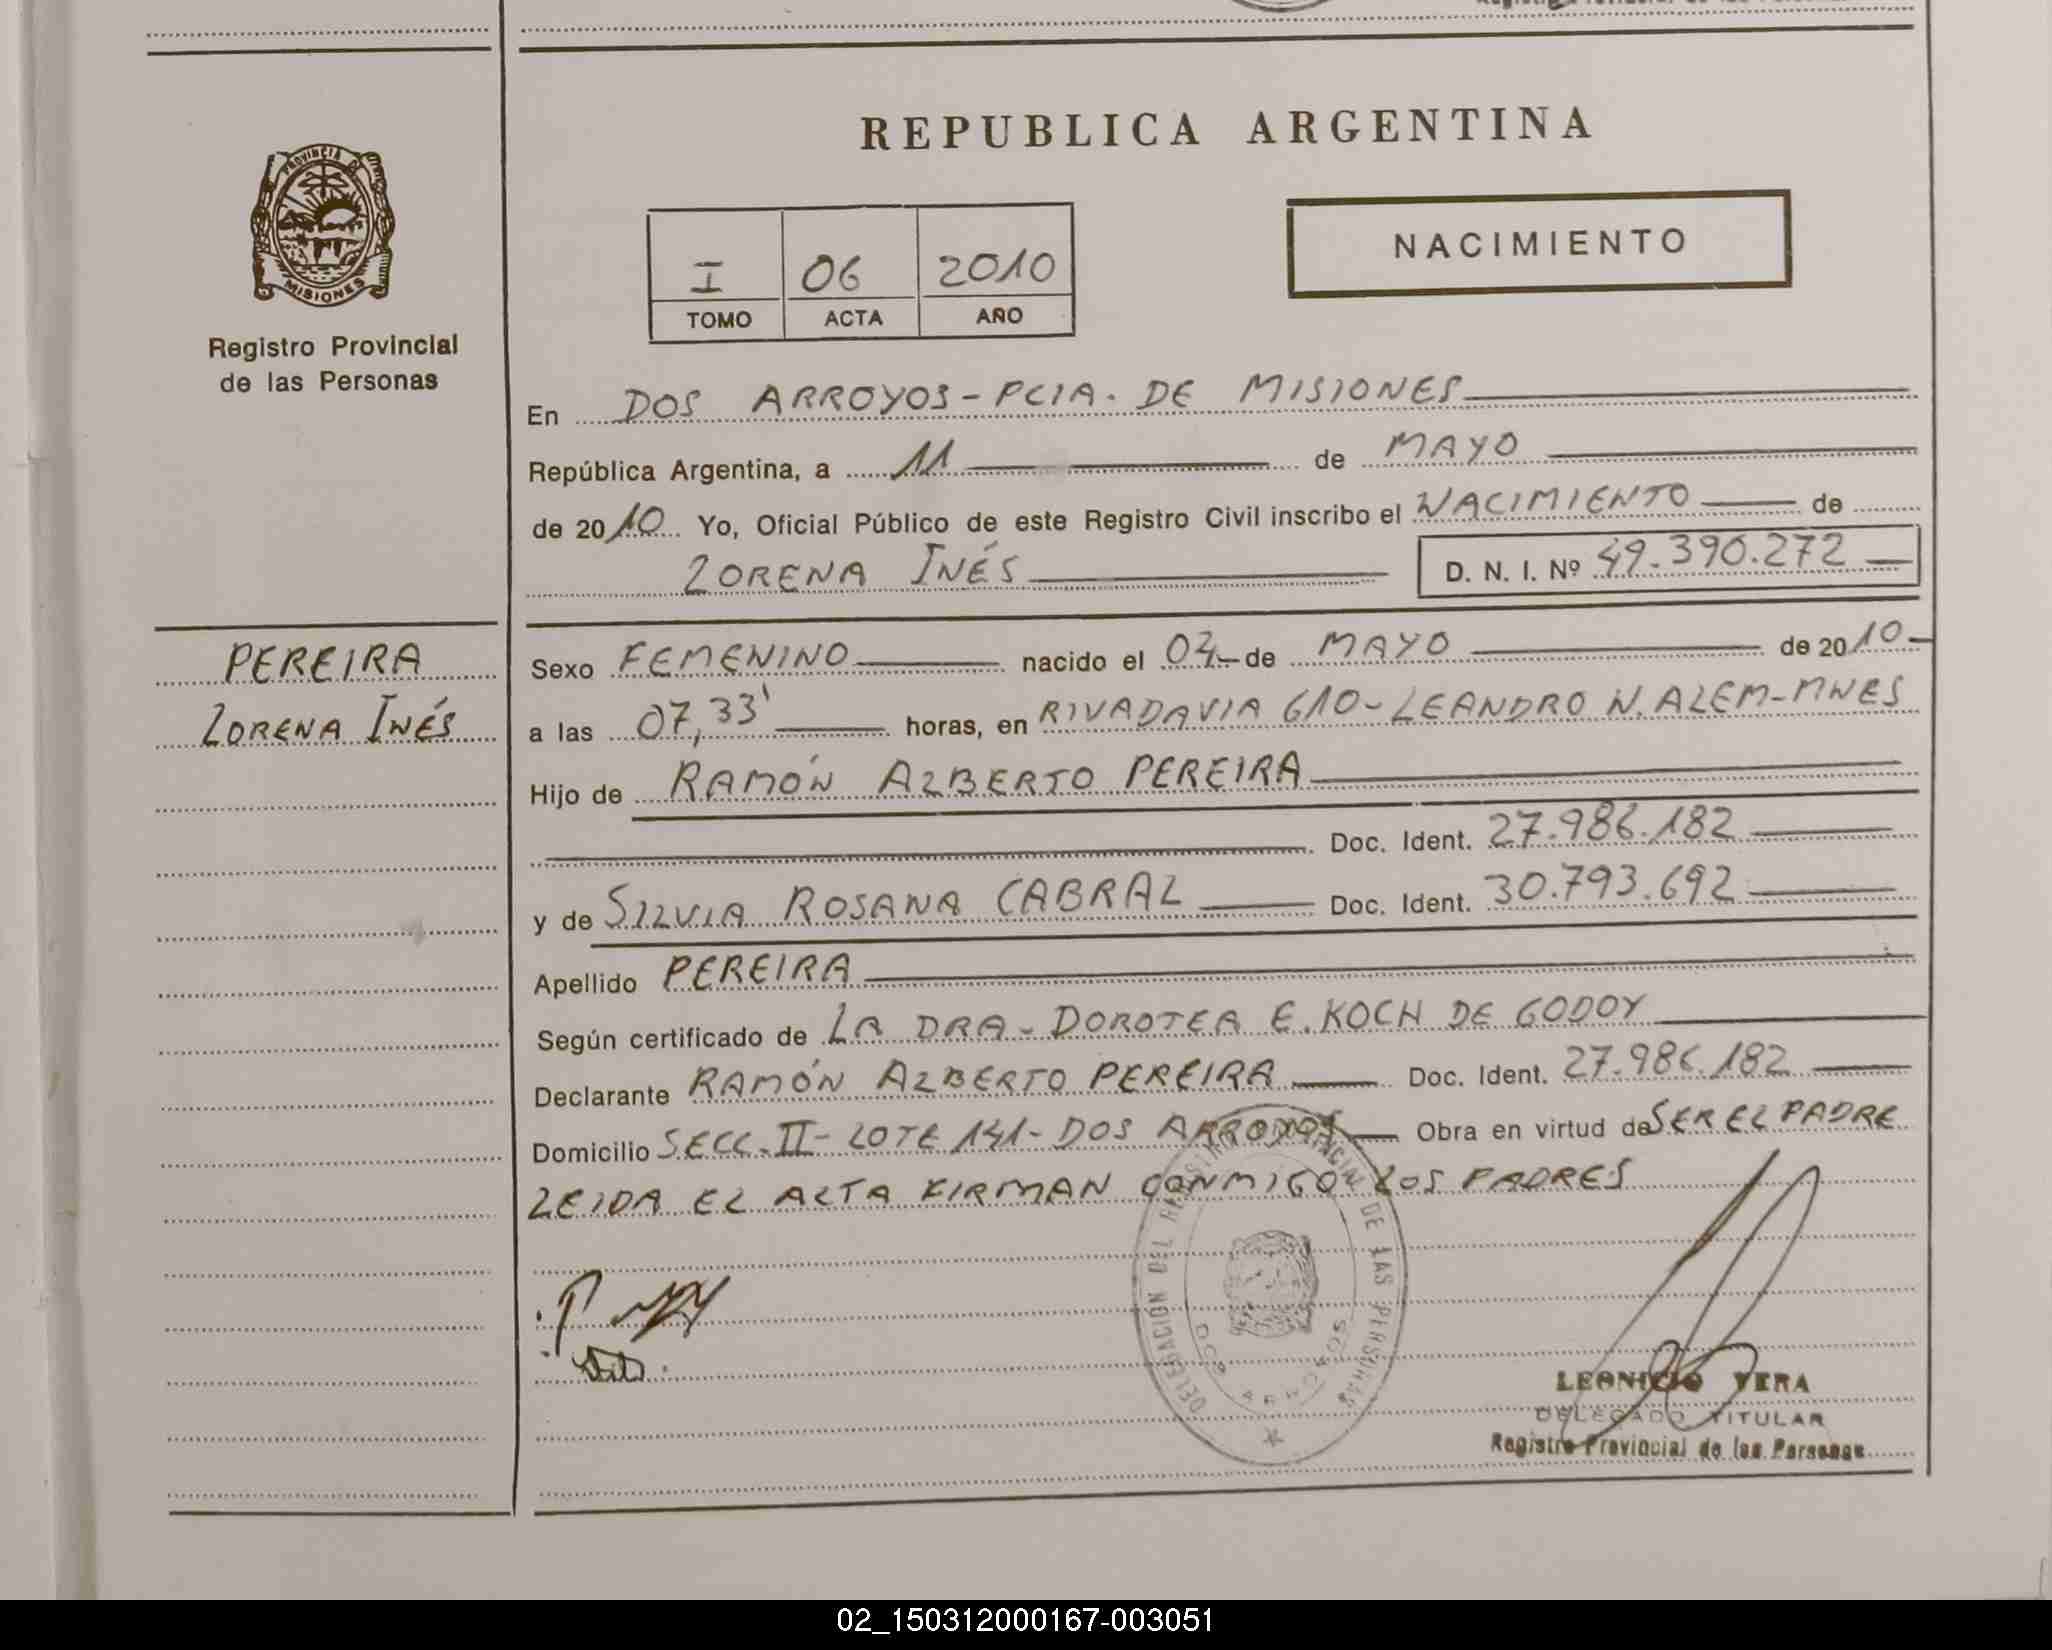 REPUBLICA ARGENTINA
PROVINCIA DE
MISIONES
Registro Provincial
de las Personas
I 06 2010
TOMO ACTA AÑO
NACIMIENTO
En DOS ARROYOS - PCIA. DE MISIONES
República Argentina, a 11 de MAYO
de 2010 Yo, Oficial Público de este Registro Civil inscribo el NACIMIENTO de
LORENA INÉS D. N. I. Nº 49.390.272
PEREIRA
LORENA INÉS
Sexo FEMENINO nacido el 04 de MAYO de 2010
a las 07,33' horas, en RIVADAVIA 610 - LEANDRO N. ALEM - MNES
Hijo de RAMÓN ALBERTO PEREIRA
Doc. Ident. 27.986.182
y de SILVIA ROSANA CABRAL Doc. Ident. 30.793.692
Apellido PEREIRA
Según certificado de LA DRA. DOROTEA E. KOCH DE GODOY
Declarante RAMÓN ALBERTO PEREIRA Doc. Ident. 27.986.182
Domicilio SECC. II - LOTE 141 - DOS ARROYOS Obra en virtud de SER EL PADRE
LEIDA EL ALTA FIRMAN CONMIGO LOS PADRES
DELEGACIÓN DEL REGISTRO PROVINCIAL DE LAS PERSONAS
DOS ARROYOS
LEONICIO VERA
DELEGADO TITULAR
Registro Provincial de las Personas
02_150312000167-003051